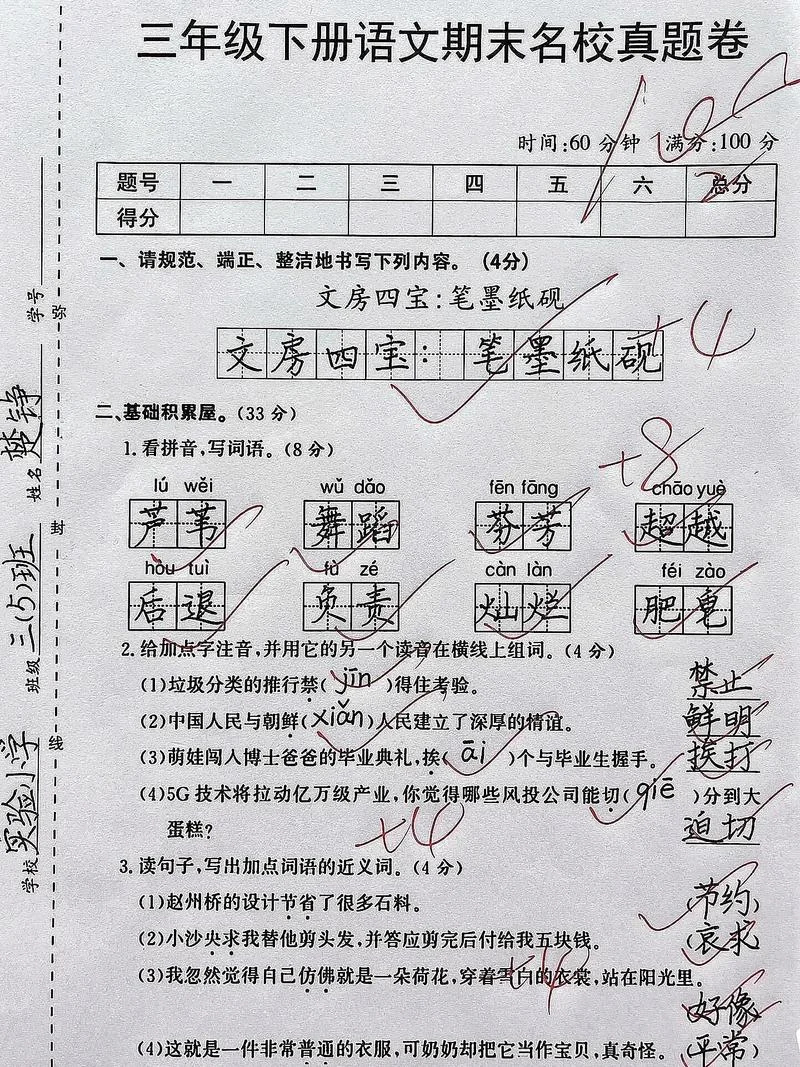 三年级下册语文期末名校真题卷
时间:60分钟 满分:100分
100
题号 一 二 三 四 五 六 总分
得分
一、请规范、端正、整洁地书写下列内容。(4分)
文房四宝:笔墨纸砚
文房四宝:笔墨纸砚
+4
二、基础积累屋。(33分)
1.看拼音,写词语。(8分)
+8
lú wěi wǔ dǎo fēn fāng chāo yuè
芦苇 舞蹈 芬芳 超越
hòu tuì fù zé càn làn féi zào
后退 负责 灿烂 肥皂
2.给加点字注音,并用它的另一个读音在横线上组词。(4分)
(1)垃圾分类的推行禁(jīn)得住考验。 禁止
(2)中国人民与朝鲜(xiǎn)人民建立了深厚的情谊。 鲜明
(3)萌娃闯入博士爸爸的毕业典礼,挨(āi)个与毕业生握手。 挨打
(4)5G技术将拉动亿万级产业,你觉得哪些风投公司能切(qiē)分到大
蛋糕? 迫切
+4
3.读句子,写出加点词语的近义词。(4分)
(1)赵州桥的设计节省了很多石料。 (节约)
(2)小沙央求我替他剪头发,并答应剪完后付给我五块钱。 (哀求
(3)我忽然觉得自己仿佛就是一朵荷花,穿着雪白的衣裳,站在阳光里。
+4
(好像
(4)这就是一件非常普通的衣服,可奶奶却把它当作宝贝,真奇怪。 (平常)
学校 实验小学 班级 三(5)班 姓名 楚铮 学号
弥 封 线